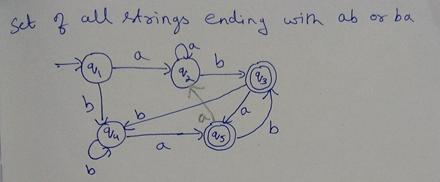 Set of all strings ending with ab or ba
a
a
q1
q2
b
q3
b
b
a
a
q4
a
q5
b
b